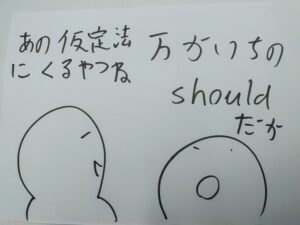 あの仮定法
にくるやつね
万がいちの
should
だか